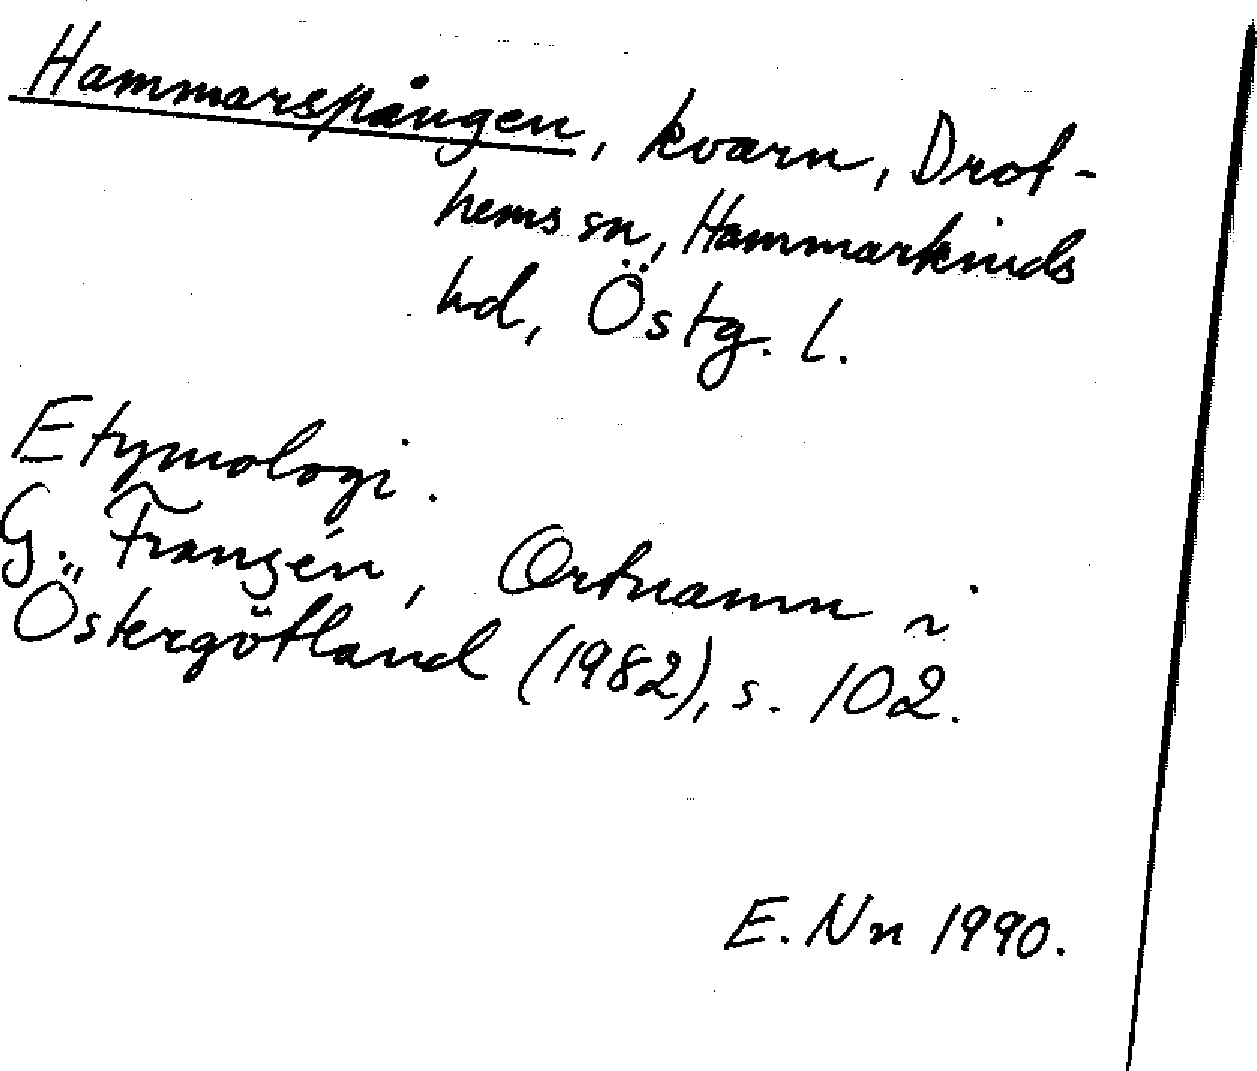 Hammarspången, kvarn, Drot-
hems sn, Hammarkinds
hd, Östg. l.
Etymologi.
G. Franzén, Ortnamn i
Östergötland (1982), s. 102.
E. Nn 1990.